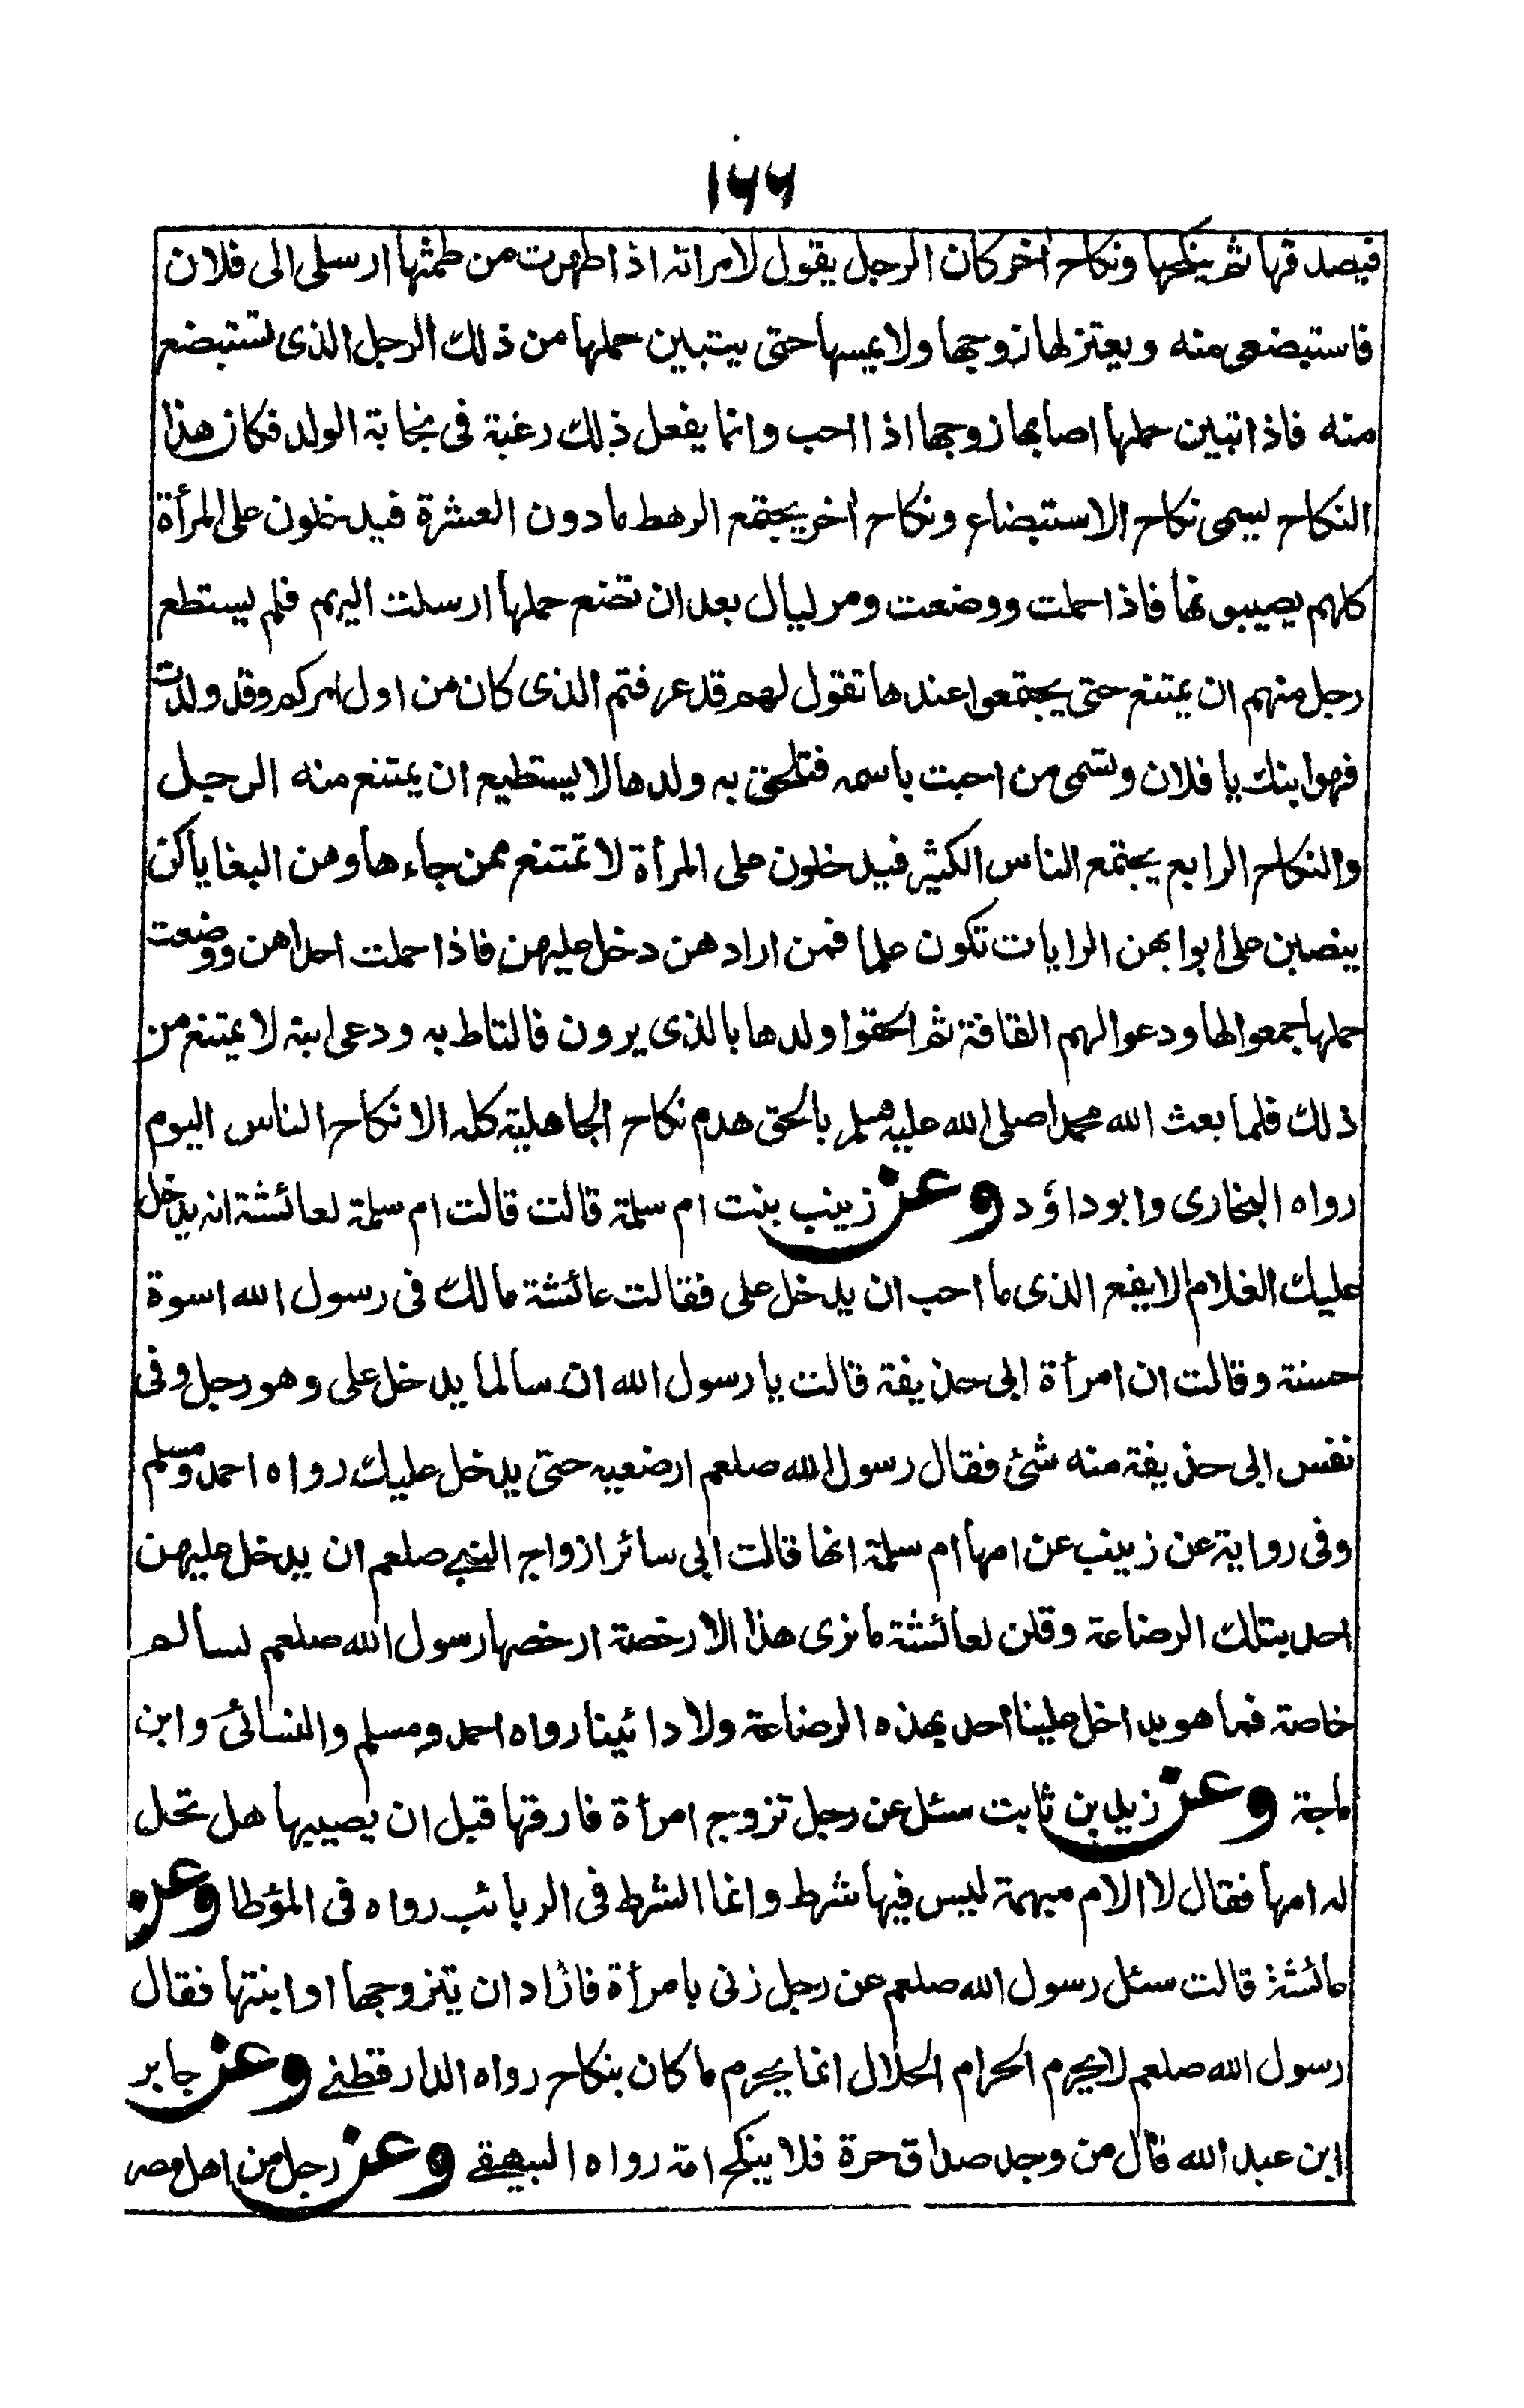 ١٦٦
فيصدقها ثم ينكحها ونكاح اٰخر كان الرجل يقول لامراته اذا طهرت من طمثها ارسلى الى فلان
فاستبضعى منه ويعتزلها زوجها ولا يمسها حتى يتبين حملها من ذلك الرجل الذى تستبضع
منه فاذا تبين حملها اصابها زوجها اذا احب وانما يفعل ذلك رغبة فى نجابة الولد فكان هذا
النكاح ليسمى نكاح الاستبضاع ونكاح اٰخر يجتمع الرهط مادون العشرة فيدخلون على المرأة
كلهم يصيبونها فاذا حملت ووضعت ومر ليال بعد ان تضع حملها ارسلت اليهم فلم يستطع
رجل منهم ان يمتنع حتى يجتمعوا عندها تقول لهم قد عرفتم الذى كان من اول امركم وقد ولدت
فهو ابنك يا فلان وتسمى من احبت باسمه فتلحق به ولدها لا يستطيع ان يمتنع منه الرجل
والنكاح الرابع يجتمع الناس الكثير فيدخلون على المرأة لا تمتنع ممن جاءها وهن البغايا كن
ينصبن على ابوابهن الرايات تكون علما فمن ارادهن دخل عليهن فاذا حملت احداهن ووضعت
حملها جمعوا لها ودعوا لهم القافة ثم الحقوا ولدها بالذى يرون فالتاط به ودعى ابنه لا يمتنع من
ذلك فلما بعث الله محمدا صلى الله عليه وسلم بالحق هدم نكاح الجاهلية كله الا نكاح الناس اليوم
رواه البخارى وابو داؤد وعن زينب بنت ام سلمة قالت قالت ام سلمة لعائشة انه يدخل
عليك الغلام الايفع الذى ما احب ان يدخل على فقالت عائشة مالك فى رسول الله اسوة
حسنة وقالت ان امرأة ابى حذيفة قالت يا رسول الله ان سالما يدخل على وهو رجل وفى
نفس ابى حذيفة منه شئ فقال رسول الله صلعم ارضعيه حتى يدخل عليك رواه احمد ومسلم
وفى رواية عن زينب عن امها ام سلمة انها قالت ابى سائر ازواج النبى صلعم ان يدخل عليهن
احد بتلك الرضاعة وقلن لعائشة ما نرى هذا الا رخصة ارخصها رسول الله صلعم لسالم
خاصة فما هو بداخل علينا احد بهذه الرضاعة ولا رائينا رواه احمد ومسلم والنسائى وابن
ماجة وعن زيد بن ثابت سئل عن رجل تزوج امرأة فارقها قبل ان يصيبها هل تحل
له امها فقال لا الام مبهمة ليس فيها شرط وانما الشرط فى الربائب رواه فى المؤطا وعن
عائشة قالت سئل رسول الله صلعم عن رجل زنى بامرأة فاراد ان يتزوجها او ابنتها فقال
رسول الله صلعم لا يحرم الحرام الحلال انما يحرم ما كان بنكاح رواه الدارقطنى وعن جابر
ابن عبد الله قال من وجد صداق حرة فلا ينكح امة رواه البيهقى وعن رجل من اهل مصر